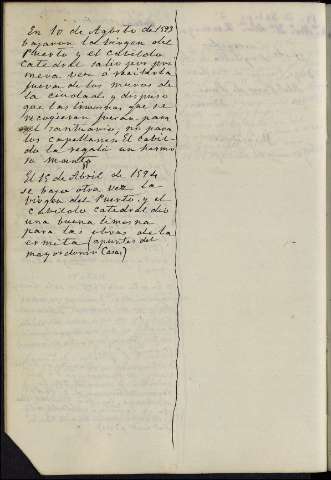 En 10 de Agosto de 1593
bajaron la Virgen del
Puerto y el Cabildo
Catedral salio por pri
mera vez a recibirla
fuera de los muros de
la ciudad, y dispuso
que las limosnas que se
recogieran fueran para
el santuario, no para
los capellanes. El Cabil-
do la regaló un hermo
so manto
El 15 de Abril de 1594
se bajo otra vez la
Virgen del Puerto, y el
Cabildo Catedral dio
una buena limosna
para las obras de la
ermita (apuntes del
mayordomo Casas)